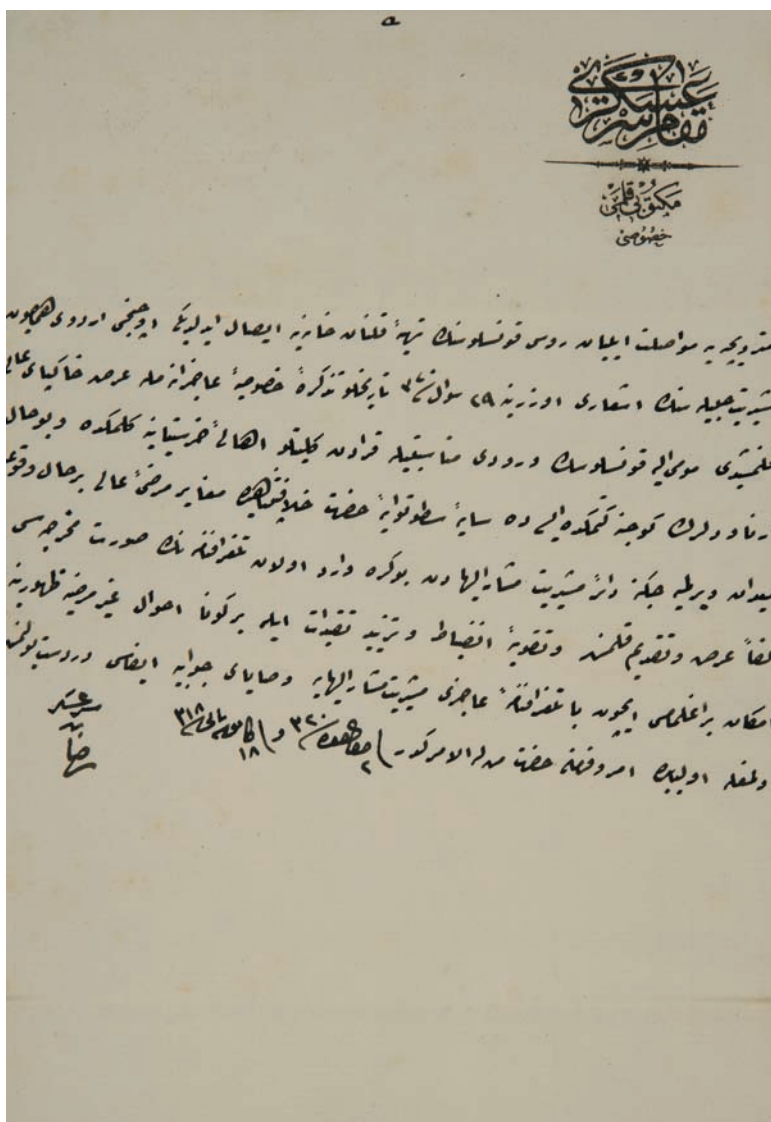 ه
مقام سر عسكرى
مكتوبى قلمى
خصوصى
متروويچه يه مواصلت ايليان روس قونسلوسنك تهيه قلنان خانه يه ايصال ايدلديكى اوچنجى اردوى همايون
مشيريت جليله سنك اشعارى اوزرينه ٢٩ شوال تاريخلو تذكره خصوصيه عاجزانه مله عرض خاكپاى عالى
قلنمشيدى مومى اليه قونسلوسك ورودى مناسبتيله قرادن كليتلو اهالئ خرستيانيه كلمكده وبوحال
ارناودلرك كوجنه كتمكده ايسه ده سايه سطوتوايه حضرت خلافتپناهيده مغاير مرضئ عالى برحال وقوعنه
ميدان ويرلميه جكنه دائر مشيريت مشار اليهادن بوكره وارد اولان تلغرافنامه نك صورت مخرجه سى
لفاً عرض وتقديم قلنمش وتقويه انضباط وتزييد تقيدات ايله بركونا احوال غير مرضيه ظهورينه
امكان براقلمامسى ايچون با تلغرافنامه عاجزى مشيريت مشار اليهايه وصاياى جوابيه ايفاسى دردست بولنمش
اولمغله اولبابده امر وفرمان حضرت من له الامركدر ٢ ٣٢٠ و ١٨ كانون ثانى ٣١٨
سر عسكر
بنده
رضا